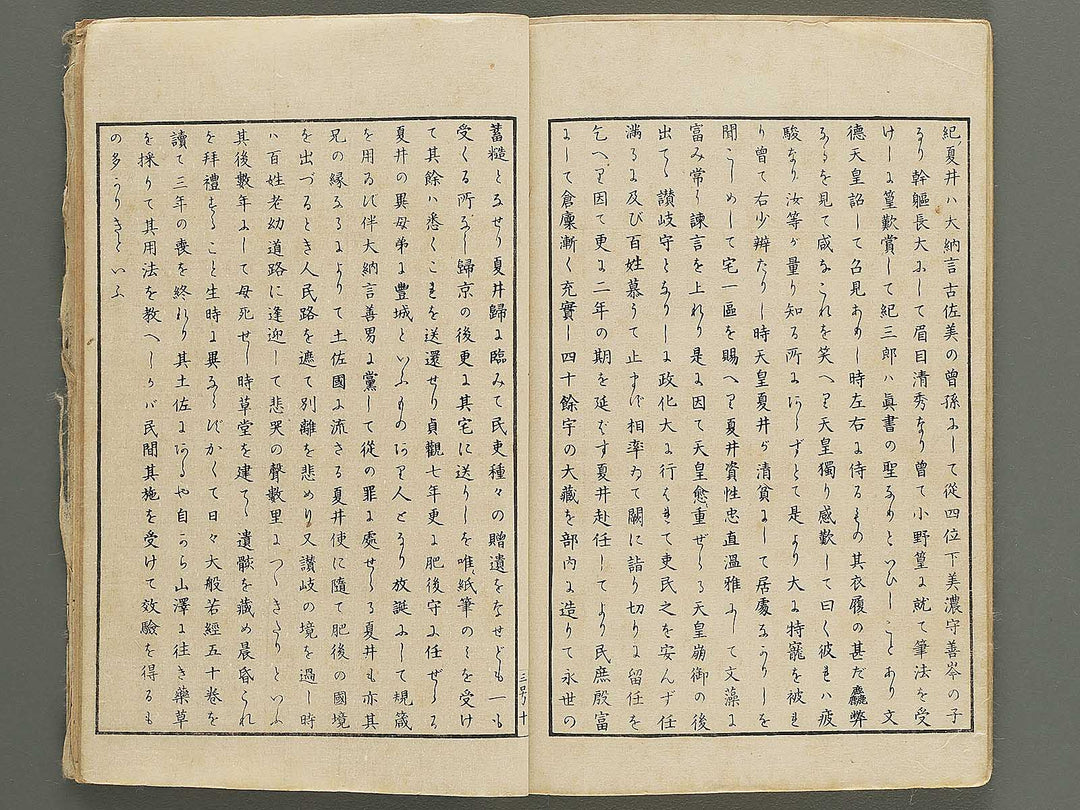 紀ノ夏井ハ大納言古佐美の曽孫にして從四位下美濃守善岑の子
なり幹軀長大にして眉目清秀なり曽て小野篁に就て筆法を受
けしに篁歎賞して紀三郎ハ眞書の聖なりといひしことあり文
德天皇詔して召見ありし時左右に侍るもの其衣履の甚だ麤弊
なるを見て咸なこれを笑へり天皇獨り感歎して曰く彼れハ疲
駿なり汝等が量り知る所にあらずとて是より大に特寵を被れ
り曽て右少辨たりし時天皇夏井が清貧にして居處なかりしを
聞こしめして宅一區を賜へり夏井資性忠直溫雅にして文藻に
富み常に諫言を上れり是に因て天皇愈重ぜらる天皇崩御の後
出でゝ讃岐守となりしに政化大に行はれて吏民之を安んず任
滿るに及び百姓慕うて止まず相率ゐて闕に詣り切りに留任を
乞へり因て更に二年の期を延ばす夏井赴任してより民庶殷富
にして倉廩漸く充實し四十餘宇の大藏を部内に造りて永世の
蓄糙となせり夏井歸に臨みて民吏種々の贈遺をなせども一も
受くる所なし歸京の後更に其宅に送りしを唯紙筆のミを受け
て其餘ハ悉くこれを送還せり貞觀七年更に肥後守に任ぜらる
夏井の異母弟に豐城といふものあり人となり放誕にして規箴
を用ゐず伴大納言善男に黨して從の罪に處せらる夏井も亦其
兄の縁なるによりて土佐國に流さる夏井使に隨て肥後の國境
を出づるとき人民路を遮て別離を悲めり又讃岐の境を過し時
ハ百姓老幼道路に逢迎して悲哭の聲數里につゞきたりといふ
其後數年にして母死せし時草堂を建てゝ遺骸を藏め晨昏これ
を拜禮すること生時に異ならずかくて日々大般若經五十卷を
讀て三年の喪を終れり其土佐にあるや自から山澤に往き藥草
を採りて其用法を教へしかバ民間其施を受けて效驗を得るも
の多かりきといふ
三号十